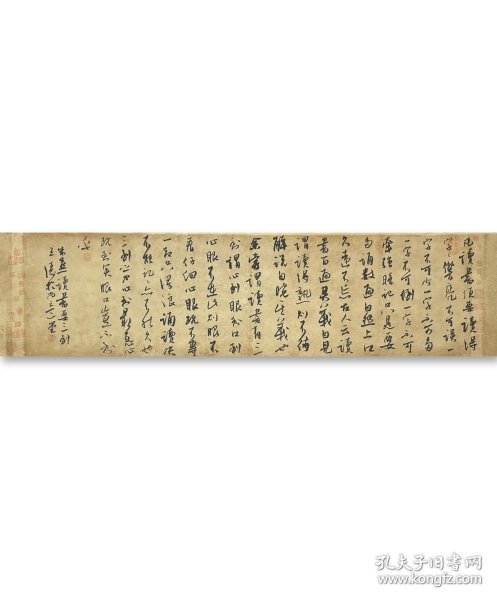 凡讀書須要讀得
字字響亮不可誤一
字不可少一字不可多
一字不可倒一字不可
牽強暗記只是要
多誦數遍自然上口
久遠不忘古人云讀
書百遍其義自見
謂讀得熟則不待
解說自曉其義也
余嘗謂讀書有三
到謂心到眼到口到
心不在此則眼不
看仔細心眼既不專
一却只漫浪誦讀決
不能記記亦不能久也
三到之中心到最急心
既到矣眼口豈不到
乎
朱熹讀書要三到
孔夫子旧书网
www.kongfz.com